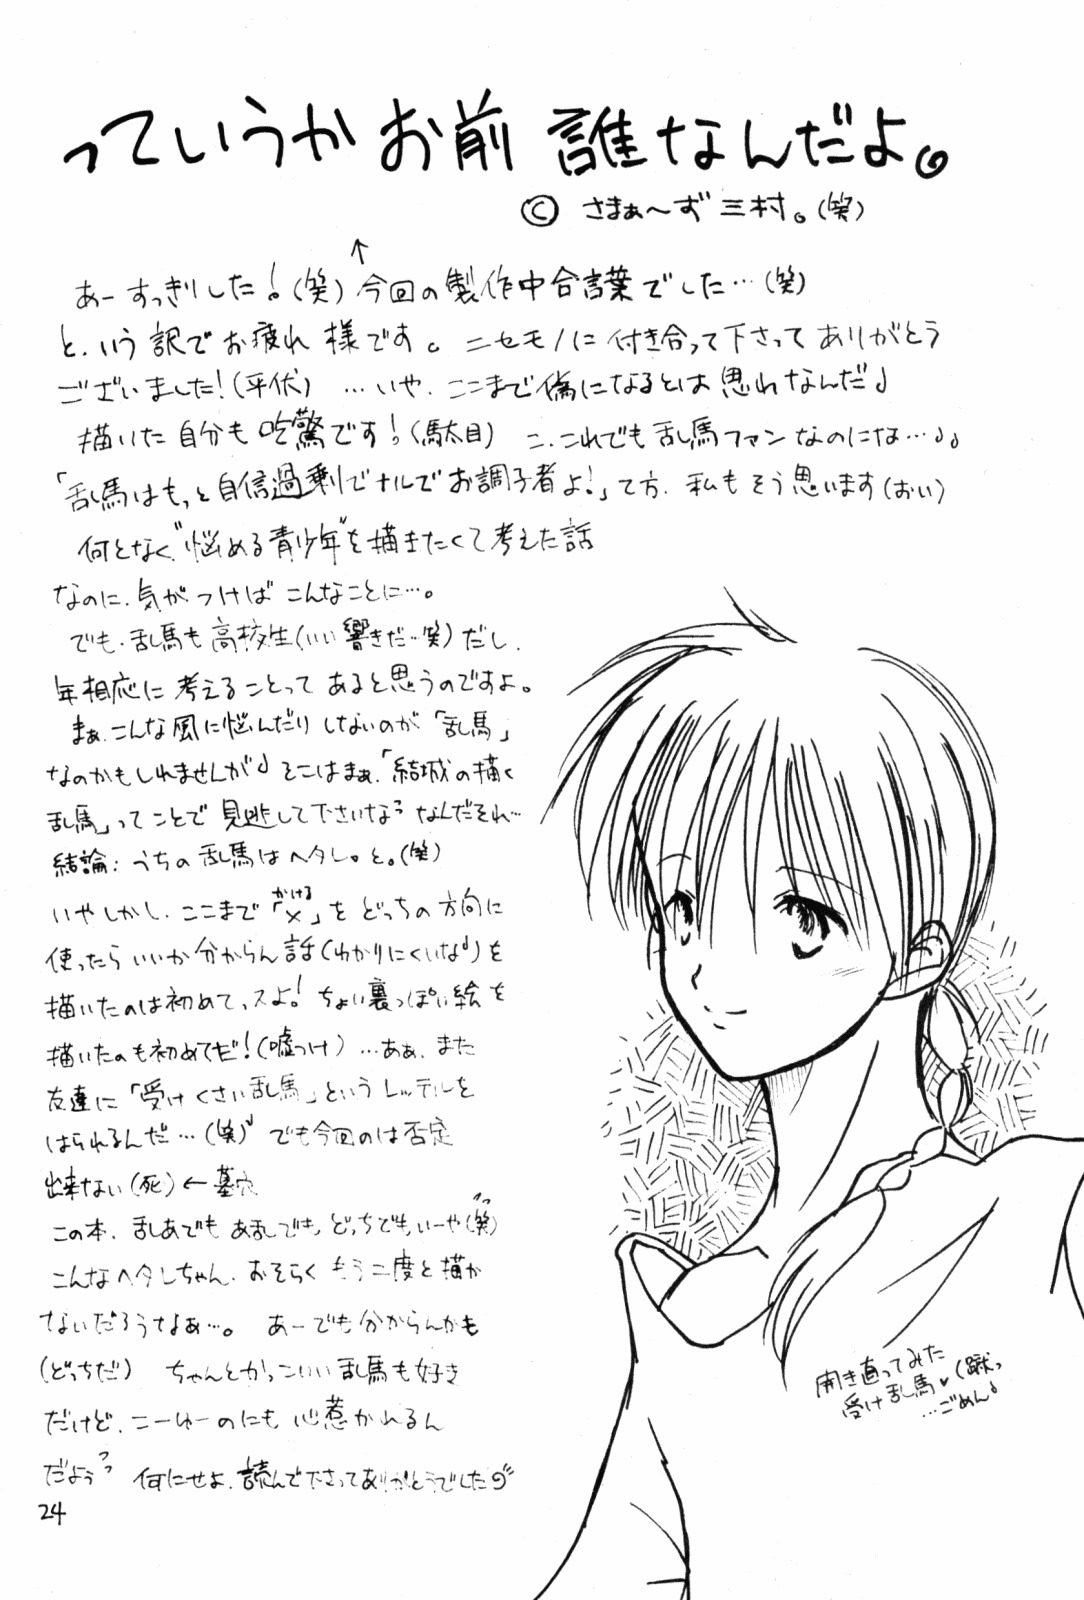 っていうかお前 誰なんだよ。
© さまぁ〜ず三村。(笑)
↑
あーすっきりした!(笑) 今回の製作中合言葉でした…(笑)
と、いう訳でお疲れ様です。ニセモノに付き合って下さってありがとう
ございました!(平伏) …いや、ここまで偽になるとは思わなんだ♪
描いた自分も吃驚です!(駄目) こ、これでも乱馬ファンなのにな…♪♪
「乱馬はもっと自信過剰でナルでお調子者よ!」て方、私もそう思います(おい)
何となく“悩める青少年”を描きたくて考えた話
なのに、気がつけばこんなことに…。
でも、乱馬も高校生(いい響きだ…笑)だし、
年相応に考えることってあると思うのですよ。
まぁ、こんな風に悩んだりしないのが「乱馬」
なのかもしれませんが♪そこはまぁ、「結城の描く
乱馬」ってことで見逃して下さいなっ なんだそれ…
結論:うちの乱馬はヘタレ。と。(笑)
いやしかし、ここまで「×」をどっちの方向に
かける
使ったらいいか分からん話(わかりにくいな♪)を
描いたのは初めてっスよ!ちょい裏っぽい絵を
描いたのも初めてだ!(嘘つけ) …ああ、また
友達に「受けくさい乱馬」というレッテルを
はられるんだ…(笑) でも今回のは否定
出来ない(死)←墓穴
この本、乱あでもあ乱でも、どっちでもいーや(笑)
こんなヘタレちゃん、おそらくもう二度と描か
ないだろうなぁ…。 あーでも分からんかも
(どっちだ) ちゃんとかっこいい乱馬も好き
だけど、こーゆーのにも心惹かれるん
だよぅっ 何にせよ、読んで下さってありがとうでした
24
開き直ってみた
受け乱馬♥(蹴っ
…ごめん♪